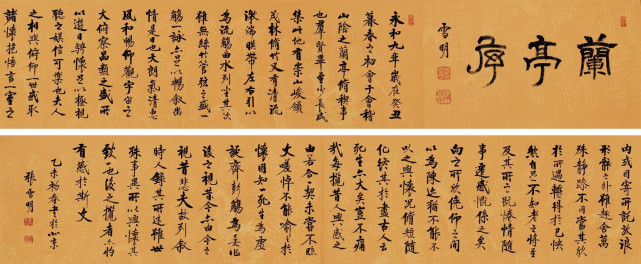 蘭亭序
雪明
永和九年歲在癸丑
暮春之初會于會稽
山陰之蘭亭脩禊事
也羣賢畢至少長咸
集此地有崇山峻領
茂林脩竹又有清流
激湍暎帶左右引以
為流觴曲水列坐其次
雖無絲竹管弦之盛一
觴一詠亦足以暢敘幽
情是日也天朗氣清惠
風和暢仰觀宇宙之
大俯察品類之盛所
以遊目騁懷足以極視
聽之娛信可樂也夫人
之相與俯仰一世或取
諸懷抱悟言一室之
內或因寄所託放浪
形骸之外雖趣舍萬
殊靜躁不同當其欣
於所遇暫得於己快
然自足不知老之將至
及其所之既惓情隨
事遷感慨係之矣
向之所欣俛仰之間
以為陳迹猶不能不
以之興懷況脩短隨
化終期於盡古人云
死生亦大矣豈不痛
哉每攬昔人興感之
由若合一契未嘗不臨
文嗟悼不能喻之於
懷固知一死生為虛
誕齊彭殤為妄作
後之視今亦由今之
視昔悲夫故列敘
時人錄其所述雖世
殊事異所以興懷其
致一也後之攬者亦將
有感於斯文
乙未初春書於北京
張雪明